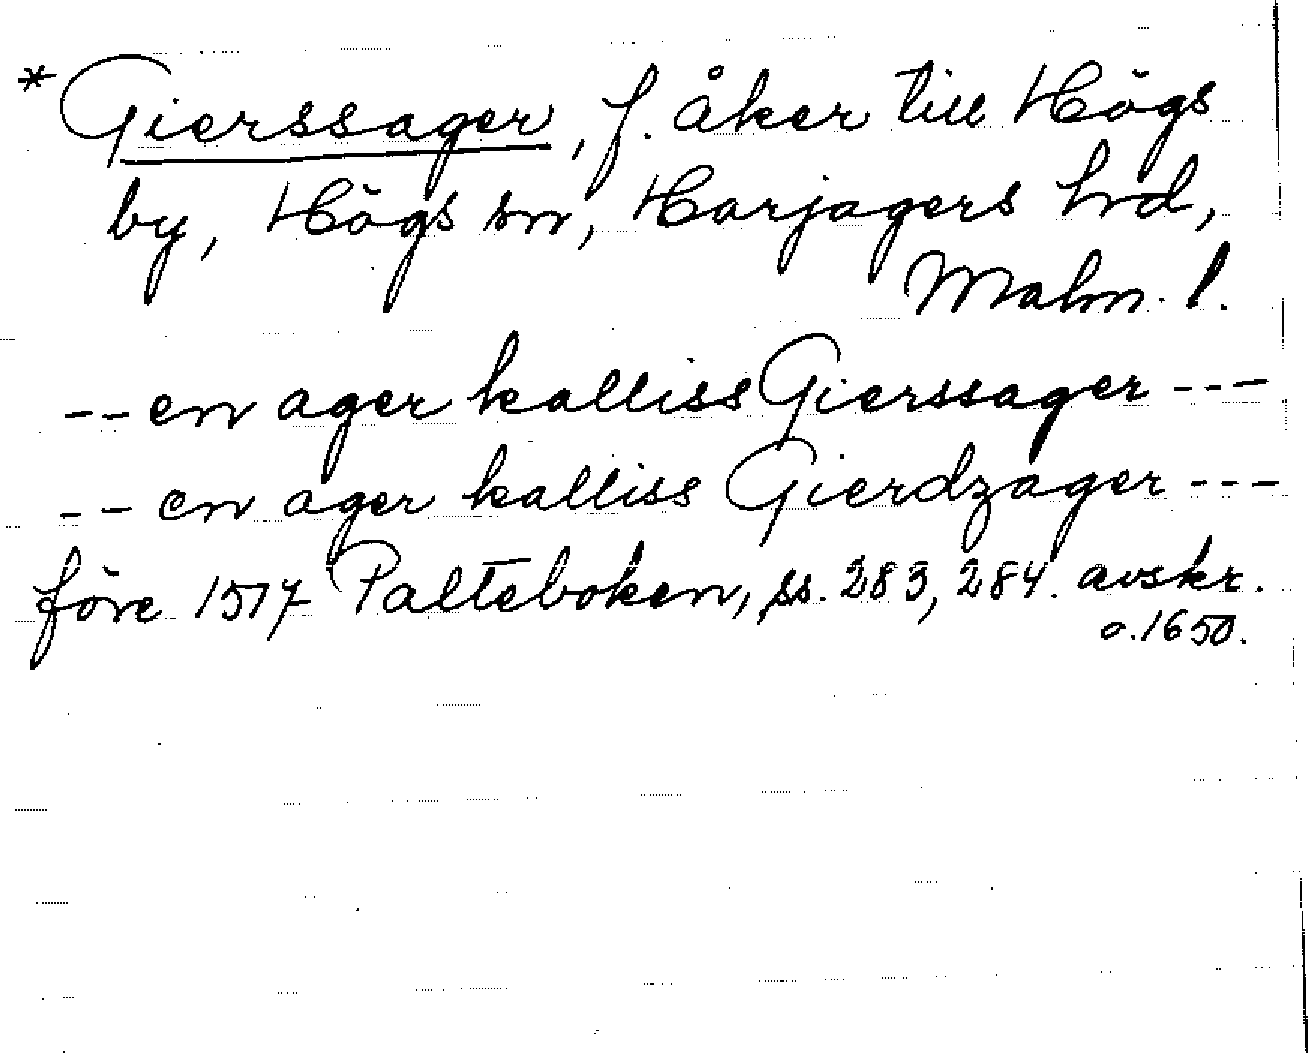 * Gierssager, f. åker till Högs
by, Högs sn, Harjagers hrd,
Malm. l.
-- en ager kalliss Gierssager ---
-- en ager kalliss Gierdzager ---
före 1517 Palteboken, ss. 283, 284. avskr.
o. 1650.